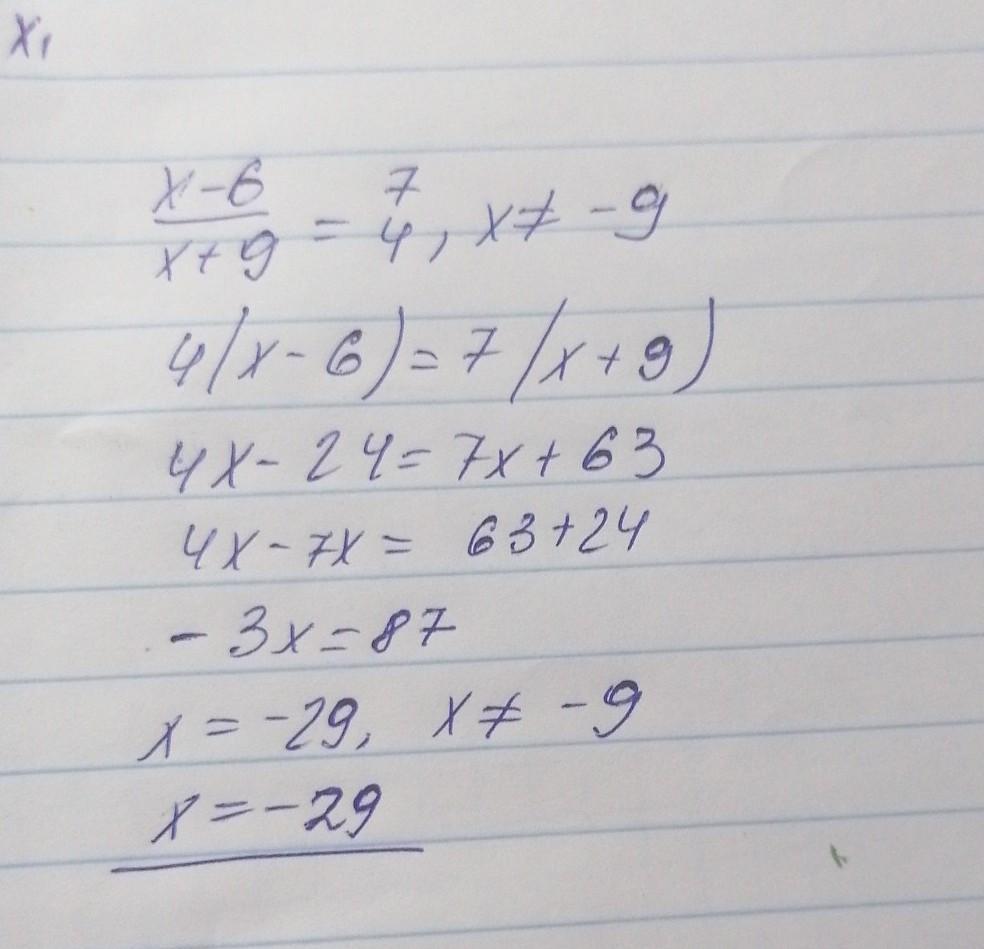 x₁
x-6 / x+9 = 7 / 4, x ≠ -9
4(x-6)=7(x+9)
4x-24=7x+63
4x-7x= 63+24
-3x=87
x=-29, x ≠ -9
x=-29